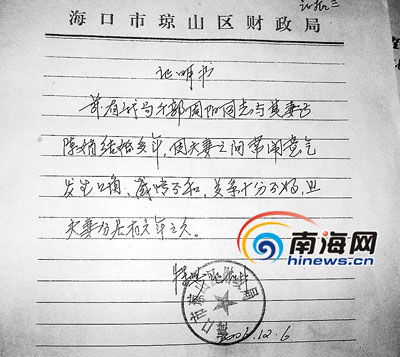 证据三
海口市琼山区财政局
证明书
兹有我局干部周同志与其妻子
陈娟结婚年,因夫妻之间常闹意气
发生口角,感情不和,关系十分不好,且
夫妻分居有年之久。
南海网
hinews.cn
特此证明
海口市琼山区财政局
12.6